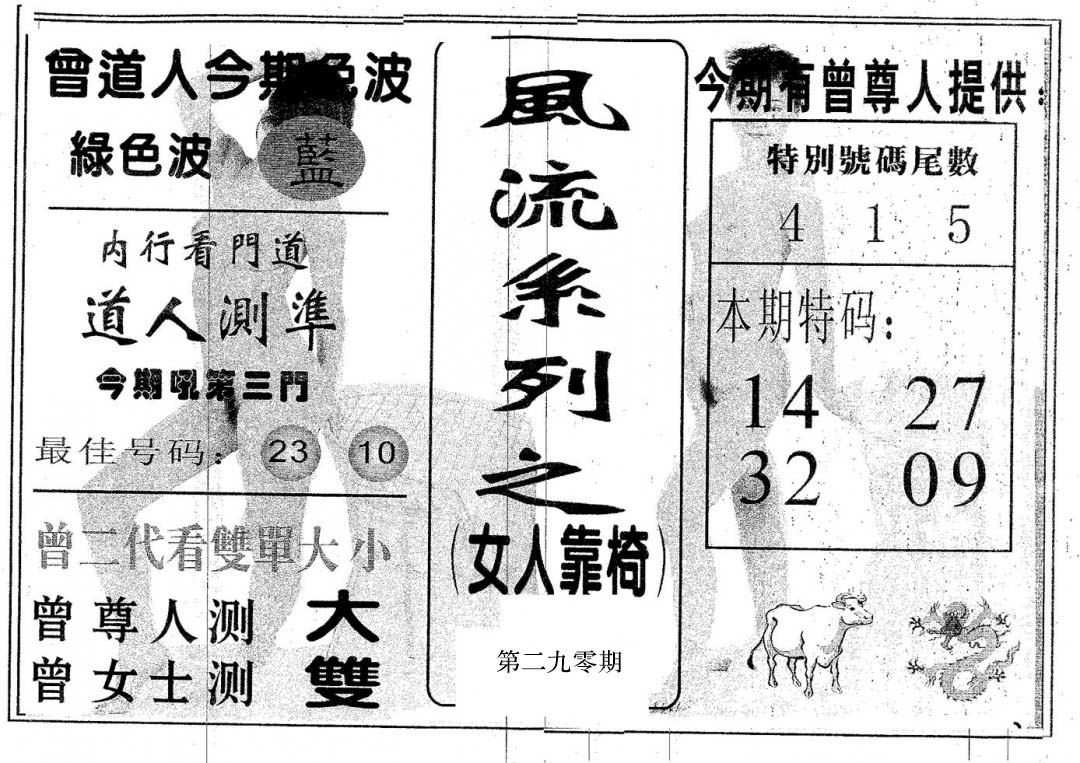 曾道人今期色波
綠色波 藍
内行看門道
道人測準
今期吼第三門
最佳号码： 23 10
曾二代看雙單大小
曾尊人测 大
曾女士测 雙
風流系列之
(女人靠椅)
第二九零期
今期有曾尊人提供：
特別號碼尾數
4 1 5
本期特码：
14 27
32 09